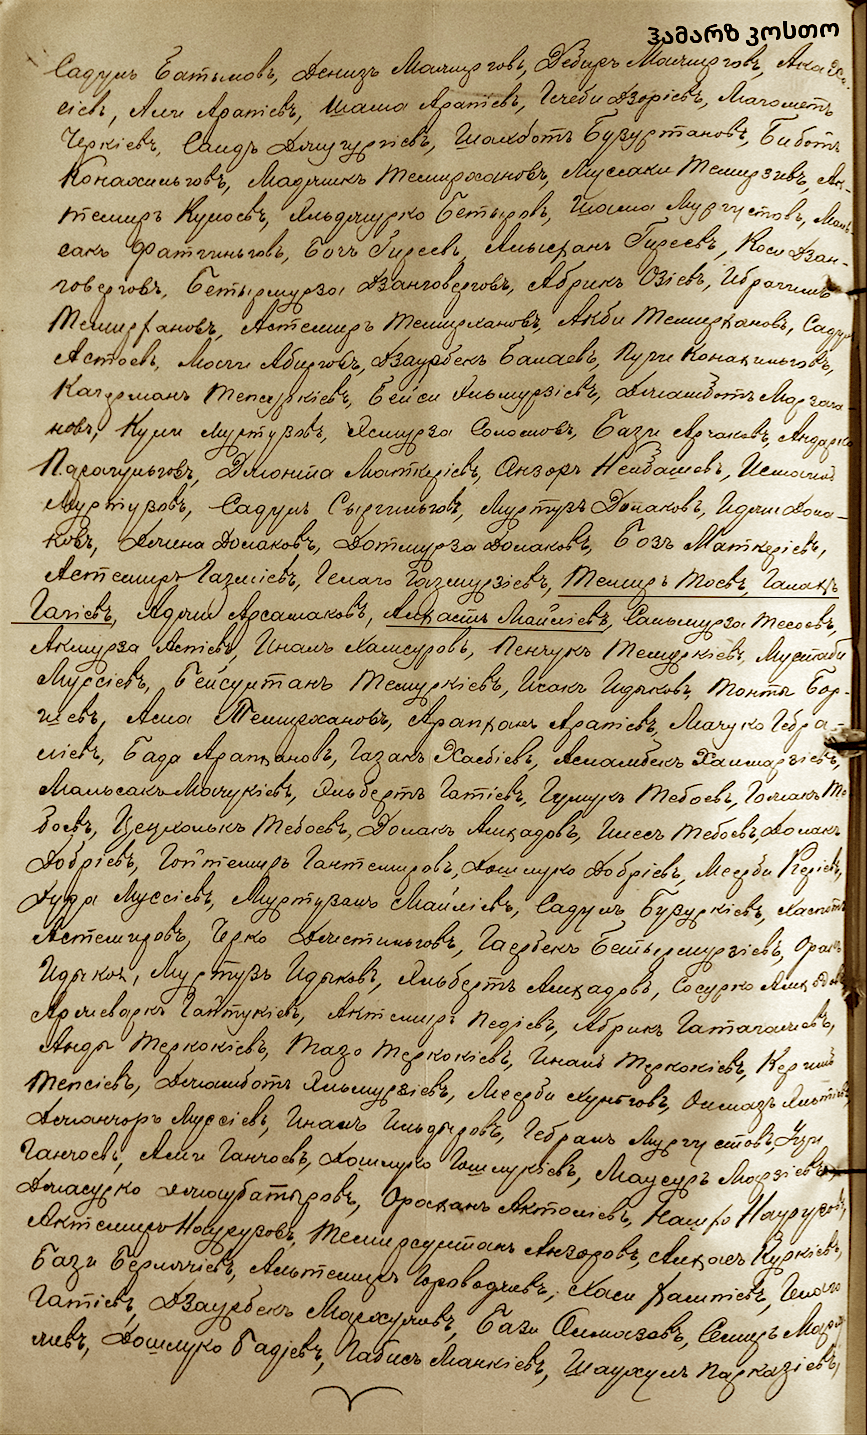 ჰამარზ კოსთო
Садулъ Батыговъ, Денизъ Мальсаговъ, Дебиръ Мальсаговъ,
сіевъ, Али Арапіевъ, Шаша Арапіевъ, Гечеби Дзоріевъ, Магометъ
Черкіевъ, Саидъ Джугургіевъ, Шахботъ Бузуртановъ, Биботъ
Конахильговъ, Мадышкъ Темирхановъ, Муссаки Темирзивъ, Ак-
темиръ Кулоевъ, Эльджурко Бетыровъ, Шаша Мургустовъ, Маль-
сакъ Фаттильговъ, Бочъ Гиреевъ, Алысханъ Гиреевъ, Коси Дзан-
говерговъ, Бетырмурза Дзанговерговъ, Абрикъ Озіевъ, Ибрагимъ
Темирхановъ, Астемиръ Темирхановъ, Акби Темирхановъ, Садулъ
Астоевъ, Мочи Абиговъ, Дзаурбекъ Балаевъ, Пуги Конахильговъ,
Кагерманъ Тепсуркіевъ, Бейси Эльмурзіевъ, Джамботъ Марзага-
новъ, Кули Муртузовъ, Эсмурза Соломовъ, Бази Арчаковъ, Андарко
Парагульговъ, Джонка Маткеріевъ, Анзоръ Нейбашевъ, Исмаилъ
Муртузовъ, Садулъ Сыргильговъ, Муртузъ Долаковъ, Идги Дола-
ковъ, Джена Долаковъ, Дотмурза Долаковъ, Бозъ Маткеріевъ,
Астемиръ Газміевъ, Гелаго Газмурзіевъ, Темиръ Тоевъ, Галакъ
Гагіевъ, Адыли Арсамаковъ, Алхастъ Майсіевъ, Сальмурза Тесоевъ,
Акмурза Астіевъ, Иналъ Хамсуровъ, Пенчукъ Темуркіевъ, Мустаби
Мурсіевъ, Бейсултанъ Темуркіевъ, Исакъ Идыковъ, Тонты Бор-
щевъ, Аса Темирхановъ, Арапханъ Арапіевъ, Мачуко Гебра-
гіевъ, Бада Арапхановъ, Газакъ Хасбіевъ, Асламбекъ Хамарзіевъ,
Мальсакъ Мочукіевъ, Эльбертъ Гатіевъ, Гумукъ Тебоевъ, Голакъ Те-
боевъ, Цецхолькъ Тебоевъ, Долакъ Алхадовъ, Инесъ Тебоевъ, Долакъ
Добріевъ, Гойтемиръ Гантемировъ, Дошлуко Добріевъ, Меерби Періевъ,
Дуда Муссіевъ, Муртузало Майсіевъ, Садулъ Бузуркіевъ, Хаспотъ
Астемировъ, Черко Джестильговъ, Гаербекъ Бетырмурзіевъ,
Идыковъ, Муртузъ Идыковъ, Эльбертъ Алхадовъ, Сосурко Алхадовъ,
Гайтукіевъ, Актемиръ Педіевъ, Абрикъ Гатагажевъ,
Анды Теркокіевъ, Тазо Теркокіевъ, Иналъ Теркокіевъ, Керимъ
Тепсіевъ, Джамботъ Эльмурзіевъ, Меерби Кулговъ, Олмазъ
Джанчоръ Муссіевъ, Иналъ Ильдаровъ, Гебралъ Мургустовъ,
Ганчоевъ, Али Ганчоевъ, Дошлуко Гошлукіевъ, Маусуръ Мерзіевъ,
Джасурко Джаубатыровъ, Орасханъ Актоліевъ, Нацро Наурузовъ,
Актемиръ Наурузовъ, Темирсултанъ Анзоровъ, Алхасъ Куркіевъ,
Бази Берлочіевъ, Альтемиръ Бороводжевъ, Хаси Хаштіевъ, Гелаго
Гатіевъ, Дзаурбекъ Мархулиевъ, Бази Олмазовъ, Семиръ
Дошлуко Бадіевъ, Пабисъ Манкіевъ, Шаухулъ Парказіевъ,